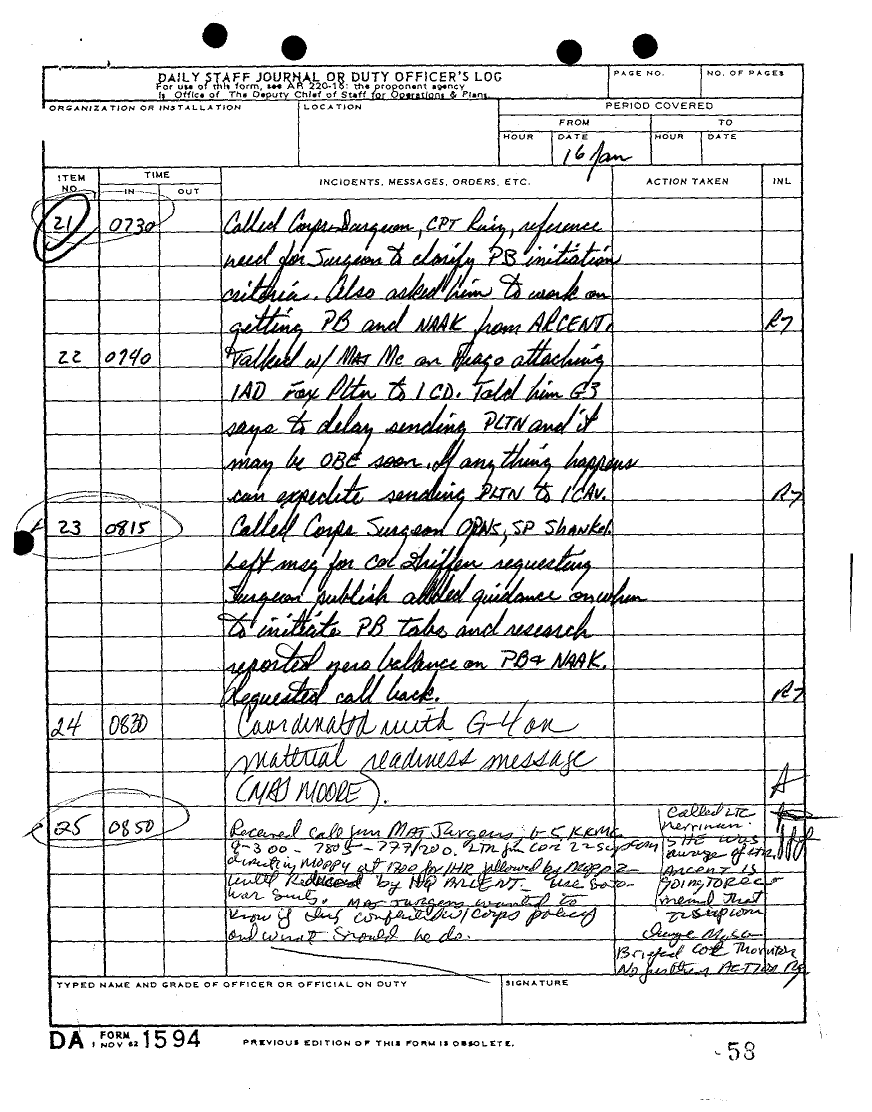 DAILY STAFF JOURNAL OR DUTY OFFICER'S LOG
For use of this form, see AR 220-15; the proponent agency
is Office of The Deputy Chief of Staff for Operations & Plans.
PAGE NO.
NO. OF PAGES
ORGANIZATION OR INSTALLATION
LOCATION
PERIOD COVERED
FROM
TO
HOUR
DATE
HOUR
DATE
16 Jan
ITEM NO.
TIME
IN
OUT
INCIDENTS, MESSAGES, ORDERS, ETC.
ACTION TAKEN
INL
21 0730 Called Corps Surgeon, CPT Ruiz, reference
need for Surgeon to clarify PB initiation
criteria. Also asked him to work on
getting PB and NAAK from ARCENT.
22 0740 Talked w/ MAJ Mc on attaching
1AD Fox Pltn to 1 CD. Told him G3
says to delay sending PLTN and it
may be OBE soon. If anything happens
can expedite sending PLTN to 1 CAV.
23 0815 Called Corps Surgeon OPNS, SP Shankel.
Left msg for Col Griffen requesting
Surgeon publish added guidance on when
to initiate PB tabs and research
reported zero balance on PB & NAAK.
Requested call back.
24 0830 Coordinated with G-4 on
material readiness message
(MAJ MOORE).
25 0850 Received call from MAJ Jurgens, G-5 KKMC
LTR from Cdr 22 supcom
directing MOPP4 at 1700 for 1HR followed by Mopp 2
until Reduced by HQ ARCENT
MAJ Jurgens wanted to
know if this conflict w/ corps policy
and what should he do.
Called LTC
Merriman.
SHE was
aware of LTR.
ARCENT IS
GOING TO REC
mend that
22 supcom
Change Msg
Briefed COL Thornton
No further ACTION
TYPED NAME AND GRADE OF OFFICER OR OFFICIAL ON DUTY
SIGNATURE
DA FORM 1 NOV 62 1594
PREVIOUS EDITION OF THIS FORM IS OBSOLETE.
-58